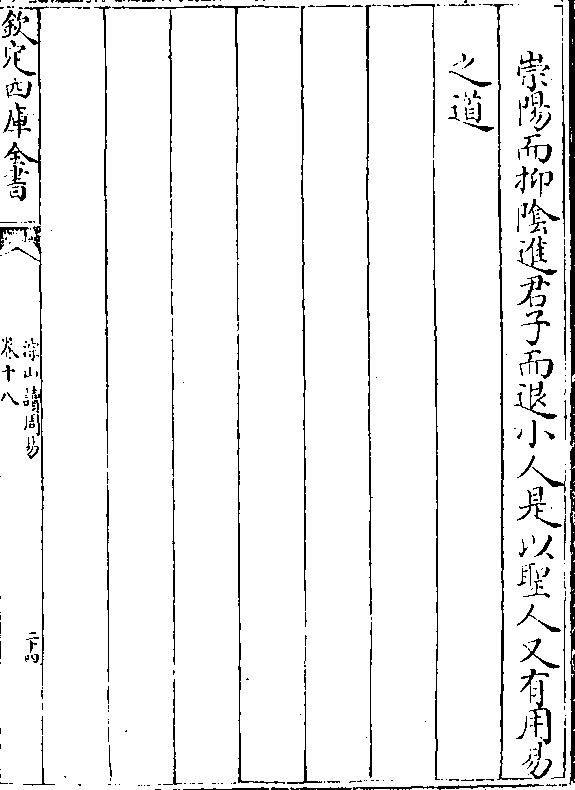 崇陽而抑陰進君子而退小人是以聖人又有用易
之道
欽定四庫全書
深山讀周易
卷十八
二十四